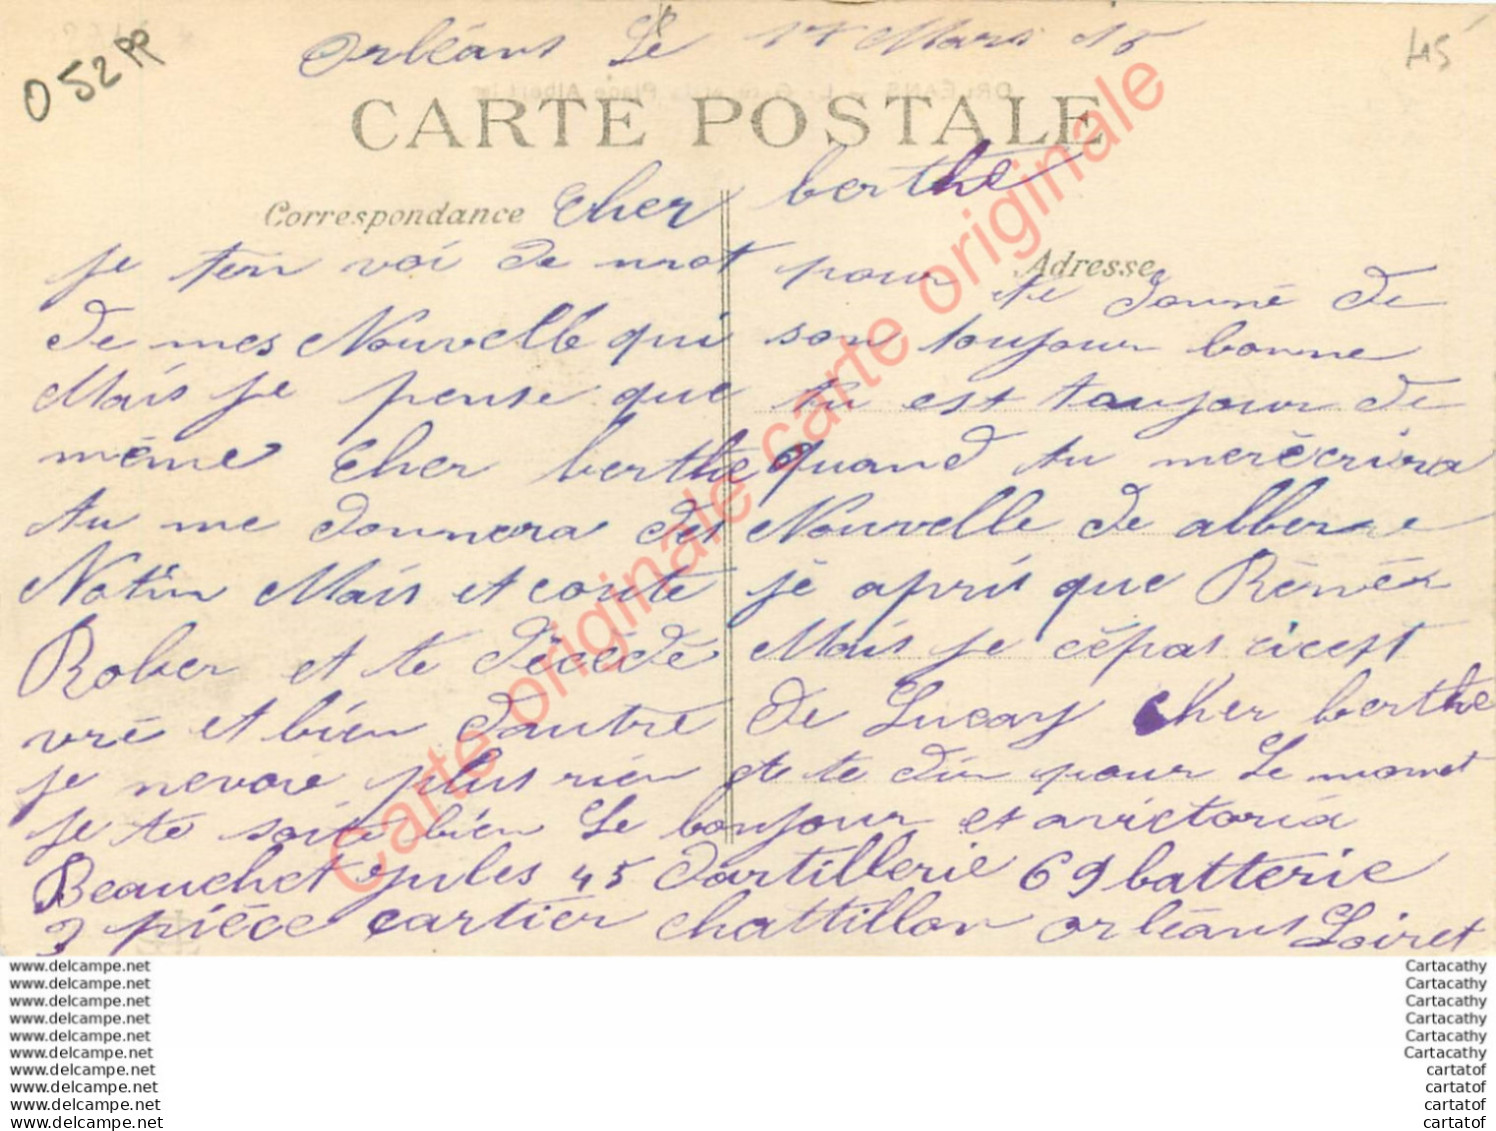 Orléans Le 17 Mars 15
O52 PP
45
ORLÉANS
CARTE POSTALE
Correspondance
Adresse
Cher berthe
je ten voi de mot pour te donné de
de mes Nouvelle qui son toujour bonne
Mais je pense que tu est toujour de
même Cher berthe quand tu merécrira
tu me donnera des Nouvelle de
Notin Mais et coute jé apris que
Rober et te décédé Mais je cépas cicest
vré et bien dautre de Lucay Cher berthe
je nevoie plus rien te din pour Le momet
je te soite bien Le bonjour et avictoria
Beauchet jules 45 dartillerie 69 batterie
3 piéce cartier chattillon orléans Loiret
Carte originale carte originale
www.delcampe.net
www.delcampe.net
www.delcampe.net
www.delcampe.net
www.delcampe.net
www.delcampe.net
www.delcampe.net
www.delcampe.net
www.delcampe.net
www.delcampe.net
Cartacathy
Cartacathy
Cartacathy
Cartacathy
Cartacathy
Cartacathy
cartatof
cartatof
cartatof
cartatof